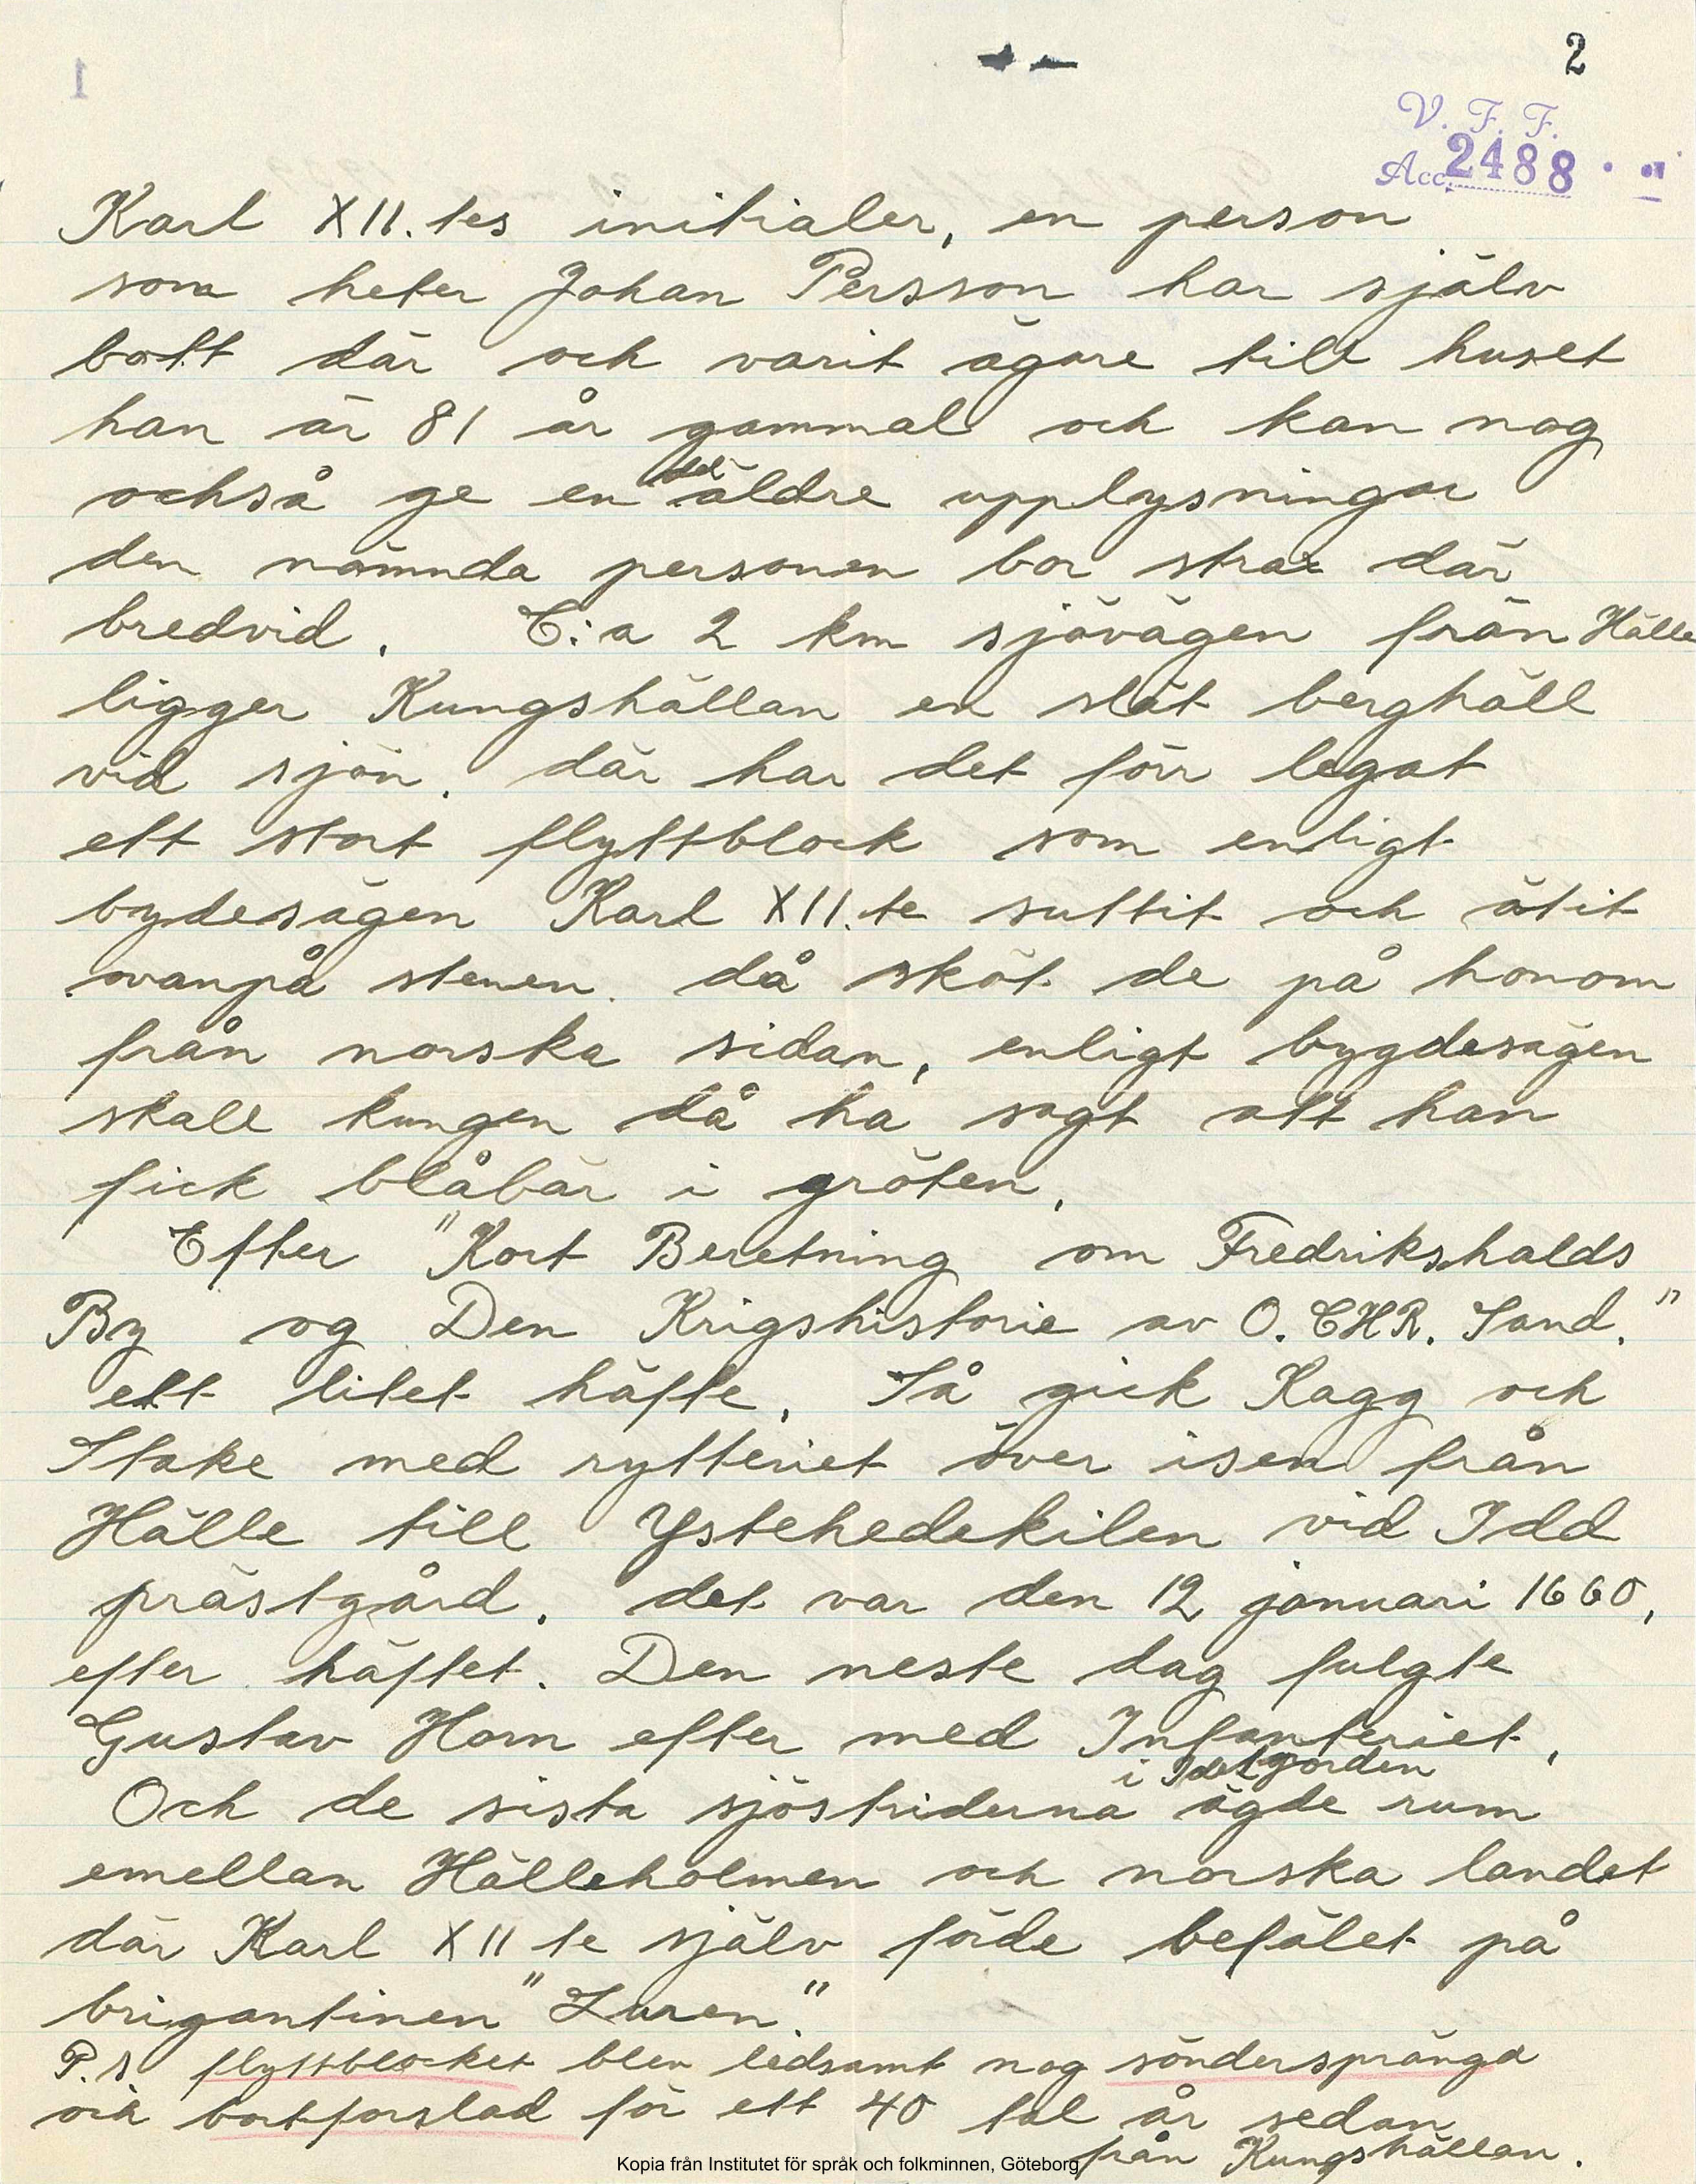 2
V. F. F.
Acc. 2488
Karl XII.tes initialer, en person
som heter Johan Persson har själv
bott där och varit ägare till huset
han är 81 år gammal och kan nog
också ge en del äldre upplysningar
den nämnda personen bor strax där
bredvid. C:a 2 km sjövägen från Hälle
ligger Kungshällan en slät berghäll
vid sjön. där har det förr legat
ett stort flyttblock som enligt
bydesägen Karl XII.te suttit och ätit
ovanpå stenen. då sköt de på honom
från norska sidan, enligt bygdesägen
skall kungen då ha sagt att han
fick blåbär i gröten.
Efter "Kort Beretning om Fredrikshalds
By og Den Krigshistorie av O. CHR. Sand."
ett litet häfte. Så gick Kagg och
Stake med rytteriet över isen från
Hälle till Ystehedekilen vid Idd
prästgård. det var den 12 januari 1660,
efter häftet. Den neste dag fulgte
Gustav Horn efter med Infanteriet.
i Idefjorden
Och de sista sjöstriderna ägde rum
emellan Hälleholmen och norska landet
där Karl XII te själv förde befälet på
brigantinen "Luren."
P.s flyttblocket blev ledsamt nog söndersprängd
och bortforslad för ett 40 tal år sedan
från Kungshällan.
Kopia från Institutet för språk och folkminnen, Göteborg